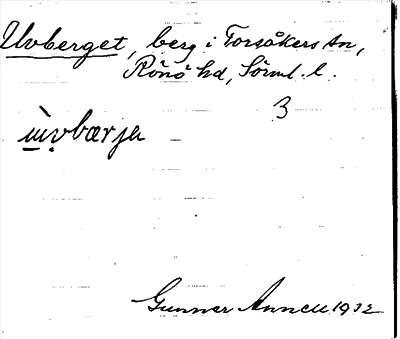 Uvberget, berg i Torsåkers sn,
Rönö hd, Sörml. l.
3
ùvbærja
Gunnar Annell 1932